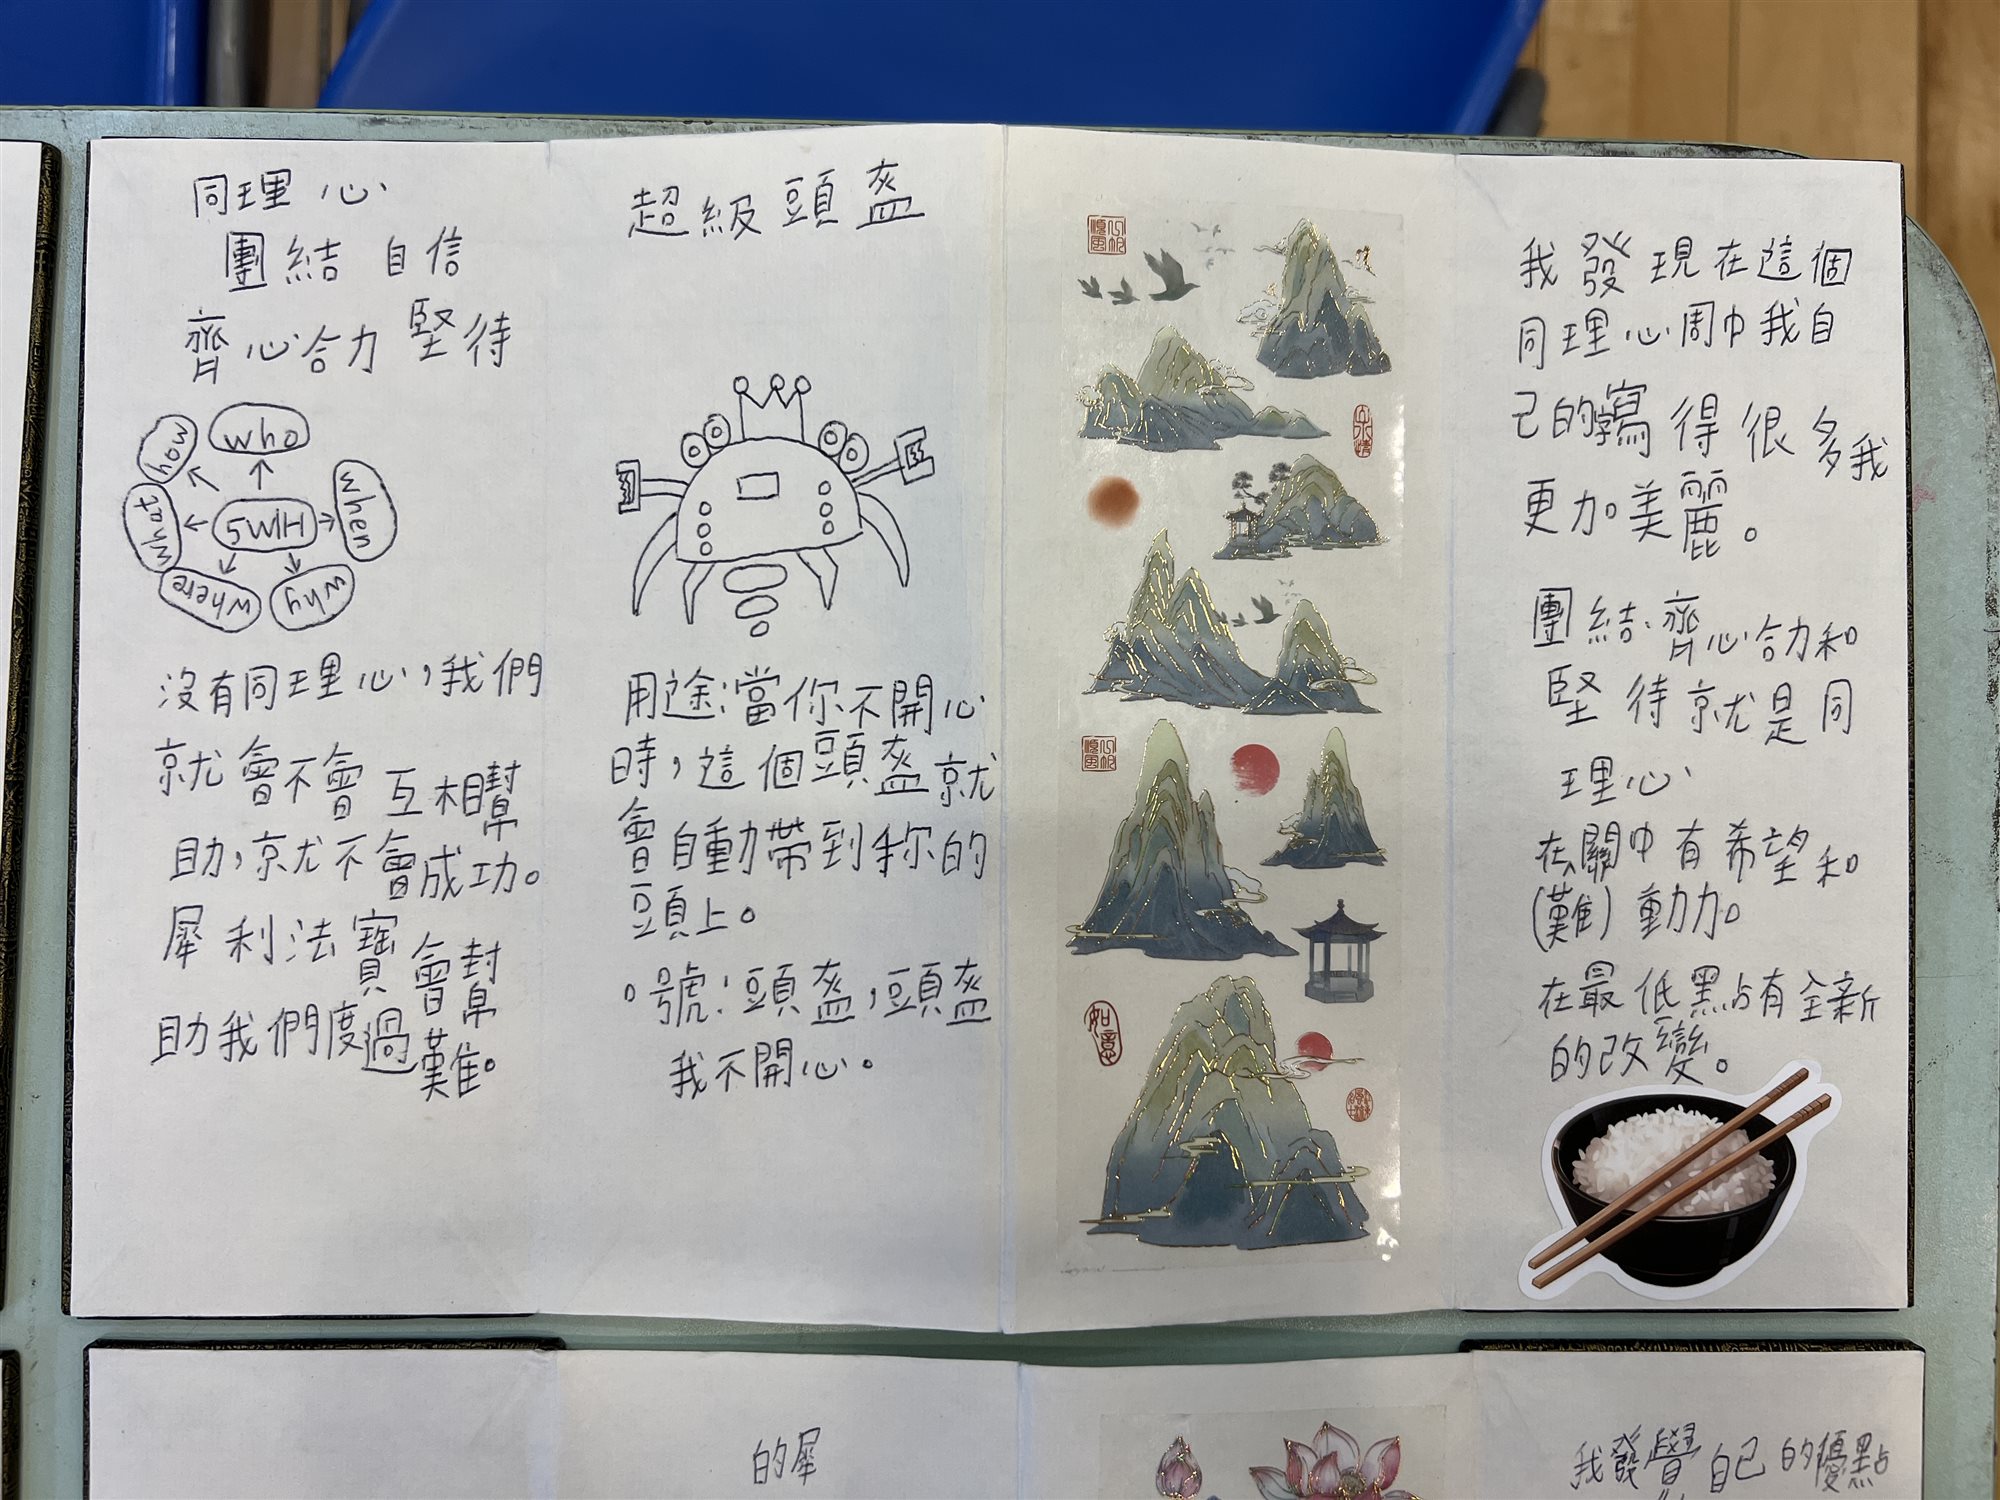 同理心
團結 自信
齊心合力 堅待
who
how
when
what
5W1H
where
why
沒有同理心，我們
就會不會互相幫
助，就不會成功。
犀利法寶會幫
助我們度過難。
超級頭盔
用途：當你不開心
時，這個頭盔就
會自動帶到你的
頭上。
。號：頭盔，頭盔
我不開心。
如意
我發現在這個
同理心周中我自
己的寫得很多我
更加美麗。
團結、齊心合力和
堅待就是同
理心
在關中有希望和
(難)動力。
在最低點有全新
的改變。
的犀
我發覺自己的優點